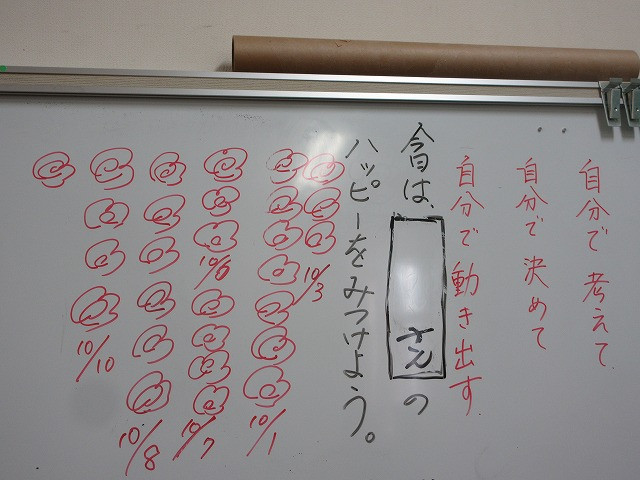 自分で 考えて
自分で 決めて
自分で 動き出す
今日は、
さん
の
ハッピーをみつけよう。
10/3
10/1
10/6
10/7
10/8
10/10